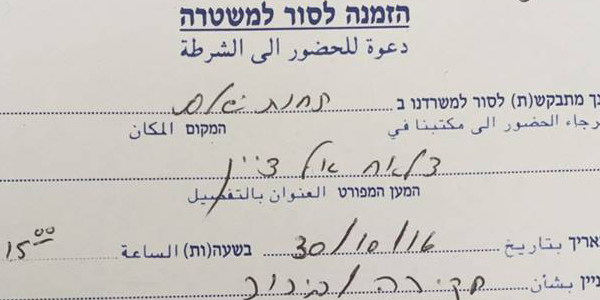 הזמנה לסור למשטרה
دعوة للحضور الى الشرطة
נך מתבקש(ת) לסור למשרדנו ב תחנת שלם
رجاء الحضور الى مكتبنا في המקום المكان
צלאח אל דין
המען המפורט العنوان بالتفصيل
אריך بتاريخ 30/10/16 בשעה(ות) الساعة 15⁰⁰
ניין بشأن חקירה